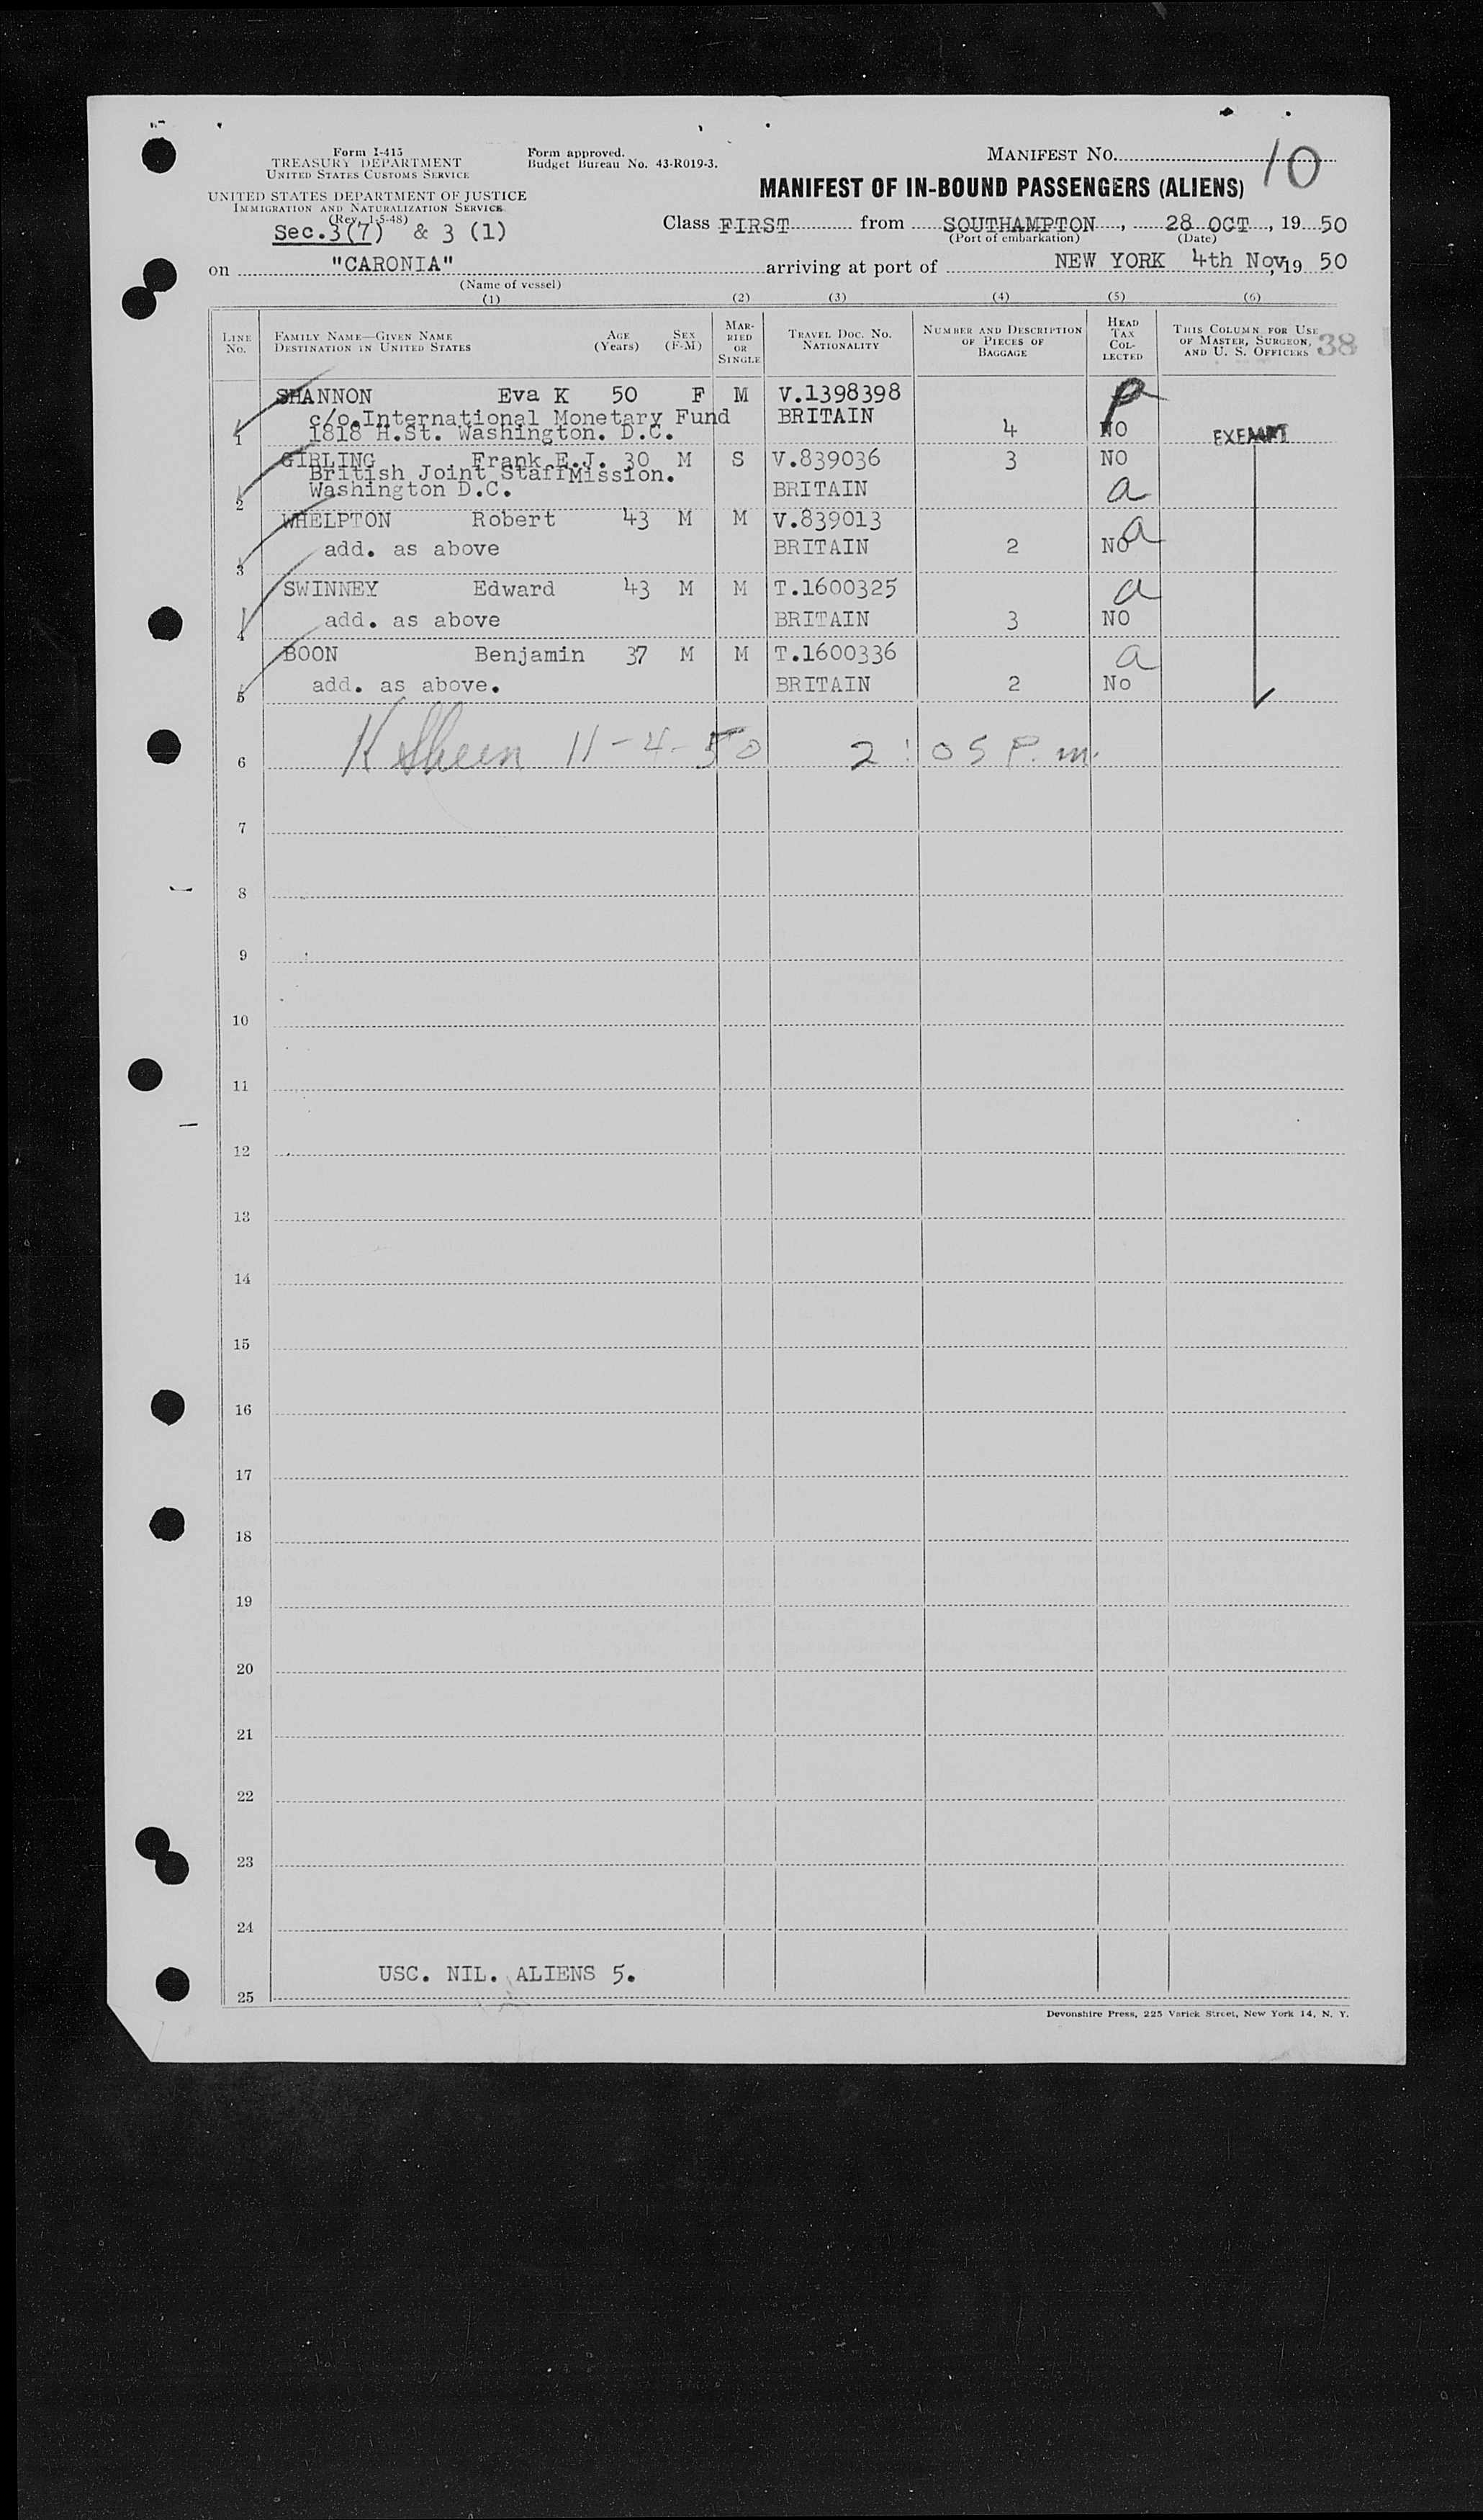 Form I-415
TREASURY DEPARTMENT
UNITED STATES CUSTOMS SERVICE
UNITED STATES DEPARTMENT OF JUSTICE
IMMIGRATION AND NATURALIZATION SERVICE
(Rev. 1-5-48)
Sec.3(7) & 3 (1)
Form approved.
Budget Bureau No. 43-R019-3.
MANIFEST No. 10
MANIFEST OF IN-BOUND PASSENGERS (ALIENS)
Class FIRST from SOUTHAMPTON, 28 OCT, 19 50
(Port of embarkation) (Date)
on "CARONIA" arriving at port of NEW YORK 4th Nov, 19 50
(Name of vessel)
(1) (2) (3) (4) (5) (6)
LINE No.
FAMILY NAME—GIVEN NAME AGE (Years) SEX (F-M)
DESTINATION IN UNITED STATES
MARRIED OR SINGLE
TRAVEL DOC. NO. NATIONALITY
NUMBER AND DESCRIPTION OF PIECES OF BAGGAGE
HEAD TAX COLLECTED
THIS COLUMN FOR USE OF MASTER, SURGEON, AND U. S. OFFICERS 38
SHANNON Eva K 50 F M V.1398398 P
c/o.International Monetary Fund BRITAIN
1 1818 H.St. Washington. D.C. 4 NO EXEMPT
GIRLING Frank E.J. 30 M S V.839036 3 NO
British Joint Staff Mission.
2 Washington D.C. BRITAIN a
WHELPTON Robert 43 M M V.839013 a
3 add. as above BRITAIN 2 NO
SWINNEY Edward 43 M M T.1600325 a
4 add. as above BRITAIN 3 NO
BOON Benjamin 37 M M T.1600336 a
5 add. as above. BRITAIN 2 No
6 K Sheen 11-4-50 2:05 P.m.
7
8
9
10
11
12
13
14
15
16
17
18
19
20
21
22
23
24
USC. NIL. ALIENS 5.
25
Devonshire Press, 225 Varick Street, New York 14, N. Y.